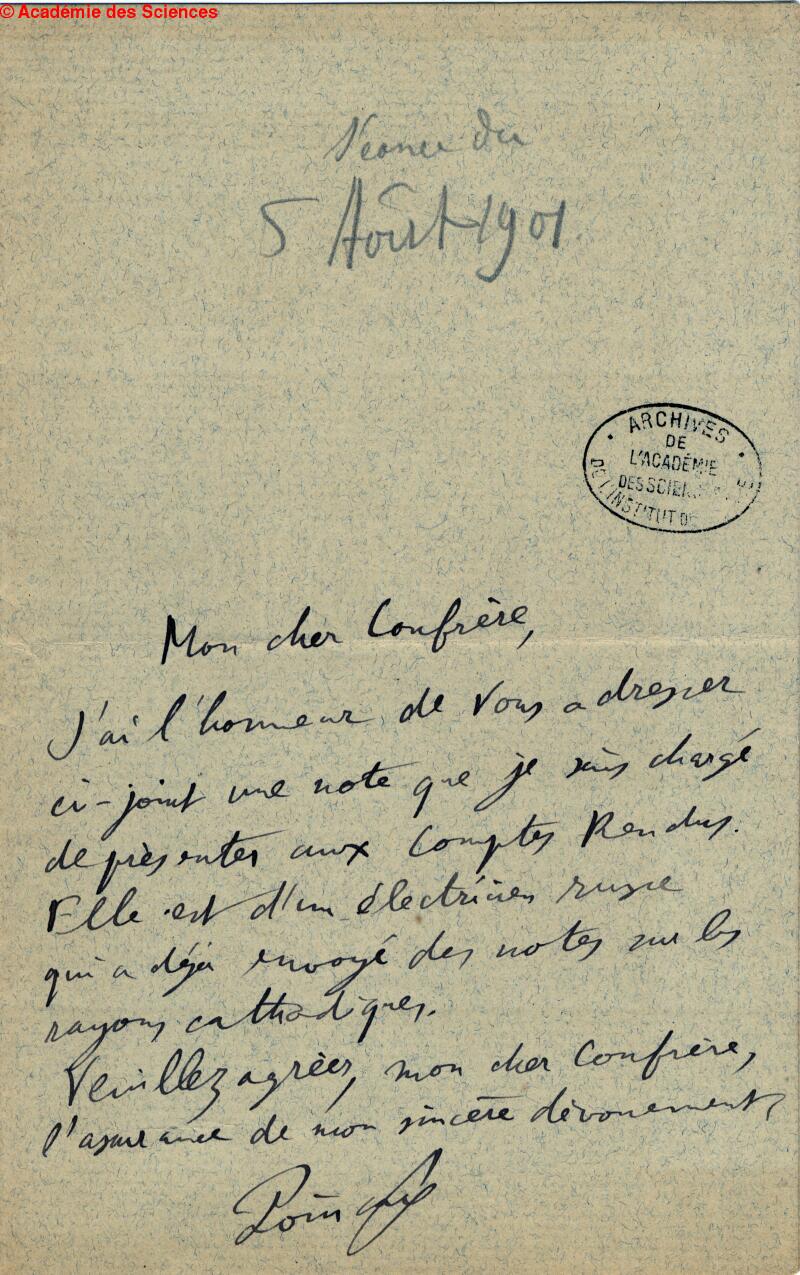 © Académie des Sciences
Séance du
5 Août 1901.
ARCHIVES
DE
L'ACADÉMIE
DES SCIEN
DE L'INSTITUT DE
Mon cher Confrère,
J'ai l'honneur de vous adresser
ci-joint une note que je suis chargé
de présenter aux Comptes Rendus.
Elle est d'un électricien russe
qui a déjà envoyé des notes sur les
rayons cathodiques.
Veuillez agréer, mon cher Confrère,
l'assurance de mon sincère dévouement,
Poincaré